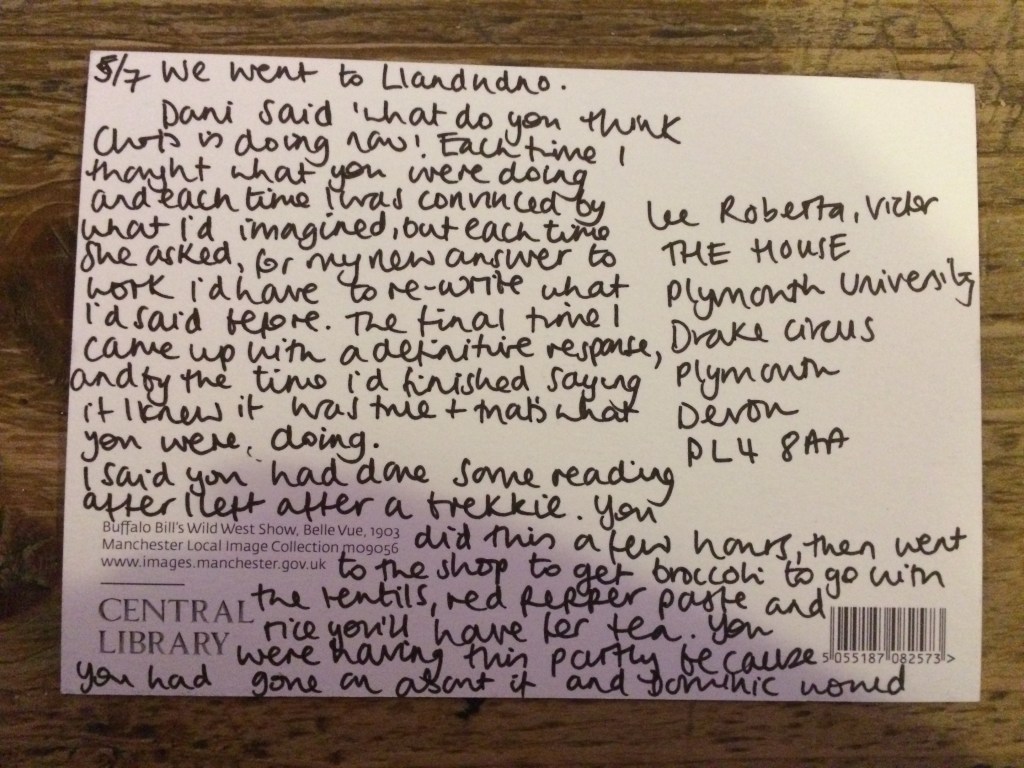 5/7 We went to Llandudno.
Dani said 'what do you think
Chris is doing now! Each time I
thought what you were doing
and each time I was convinced by
what I'd imagined, but each time
she asked, for my new answer to
work I'd have to re-write what
I'd said before. The final time I
came up with a definitive response,
and by the time I'd finished saying
it I knew it was true + that's what
you were, doing.
I said you had done some reading
after I left after a trekkie. You
did this a few hours, then went
to the shop to get broccoli to go with
the lentils, red pepper paste and
rice you'll have for tea. You
were having this partly because
you had gone on about it and Dominic would
Lee Roberta, Victor
THE HOUSE
Plymouth University
Drake Circus
Plymouth
Devon
PL4 8AA
Buffalo Bill's Wild West Show, Belle Vue, 1903
Manchester Local Image Collection m09056
www.images.manchester.gov.uk
CENTRAL
LIBRARY
5 055187 082573 >